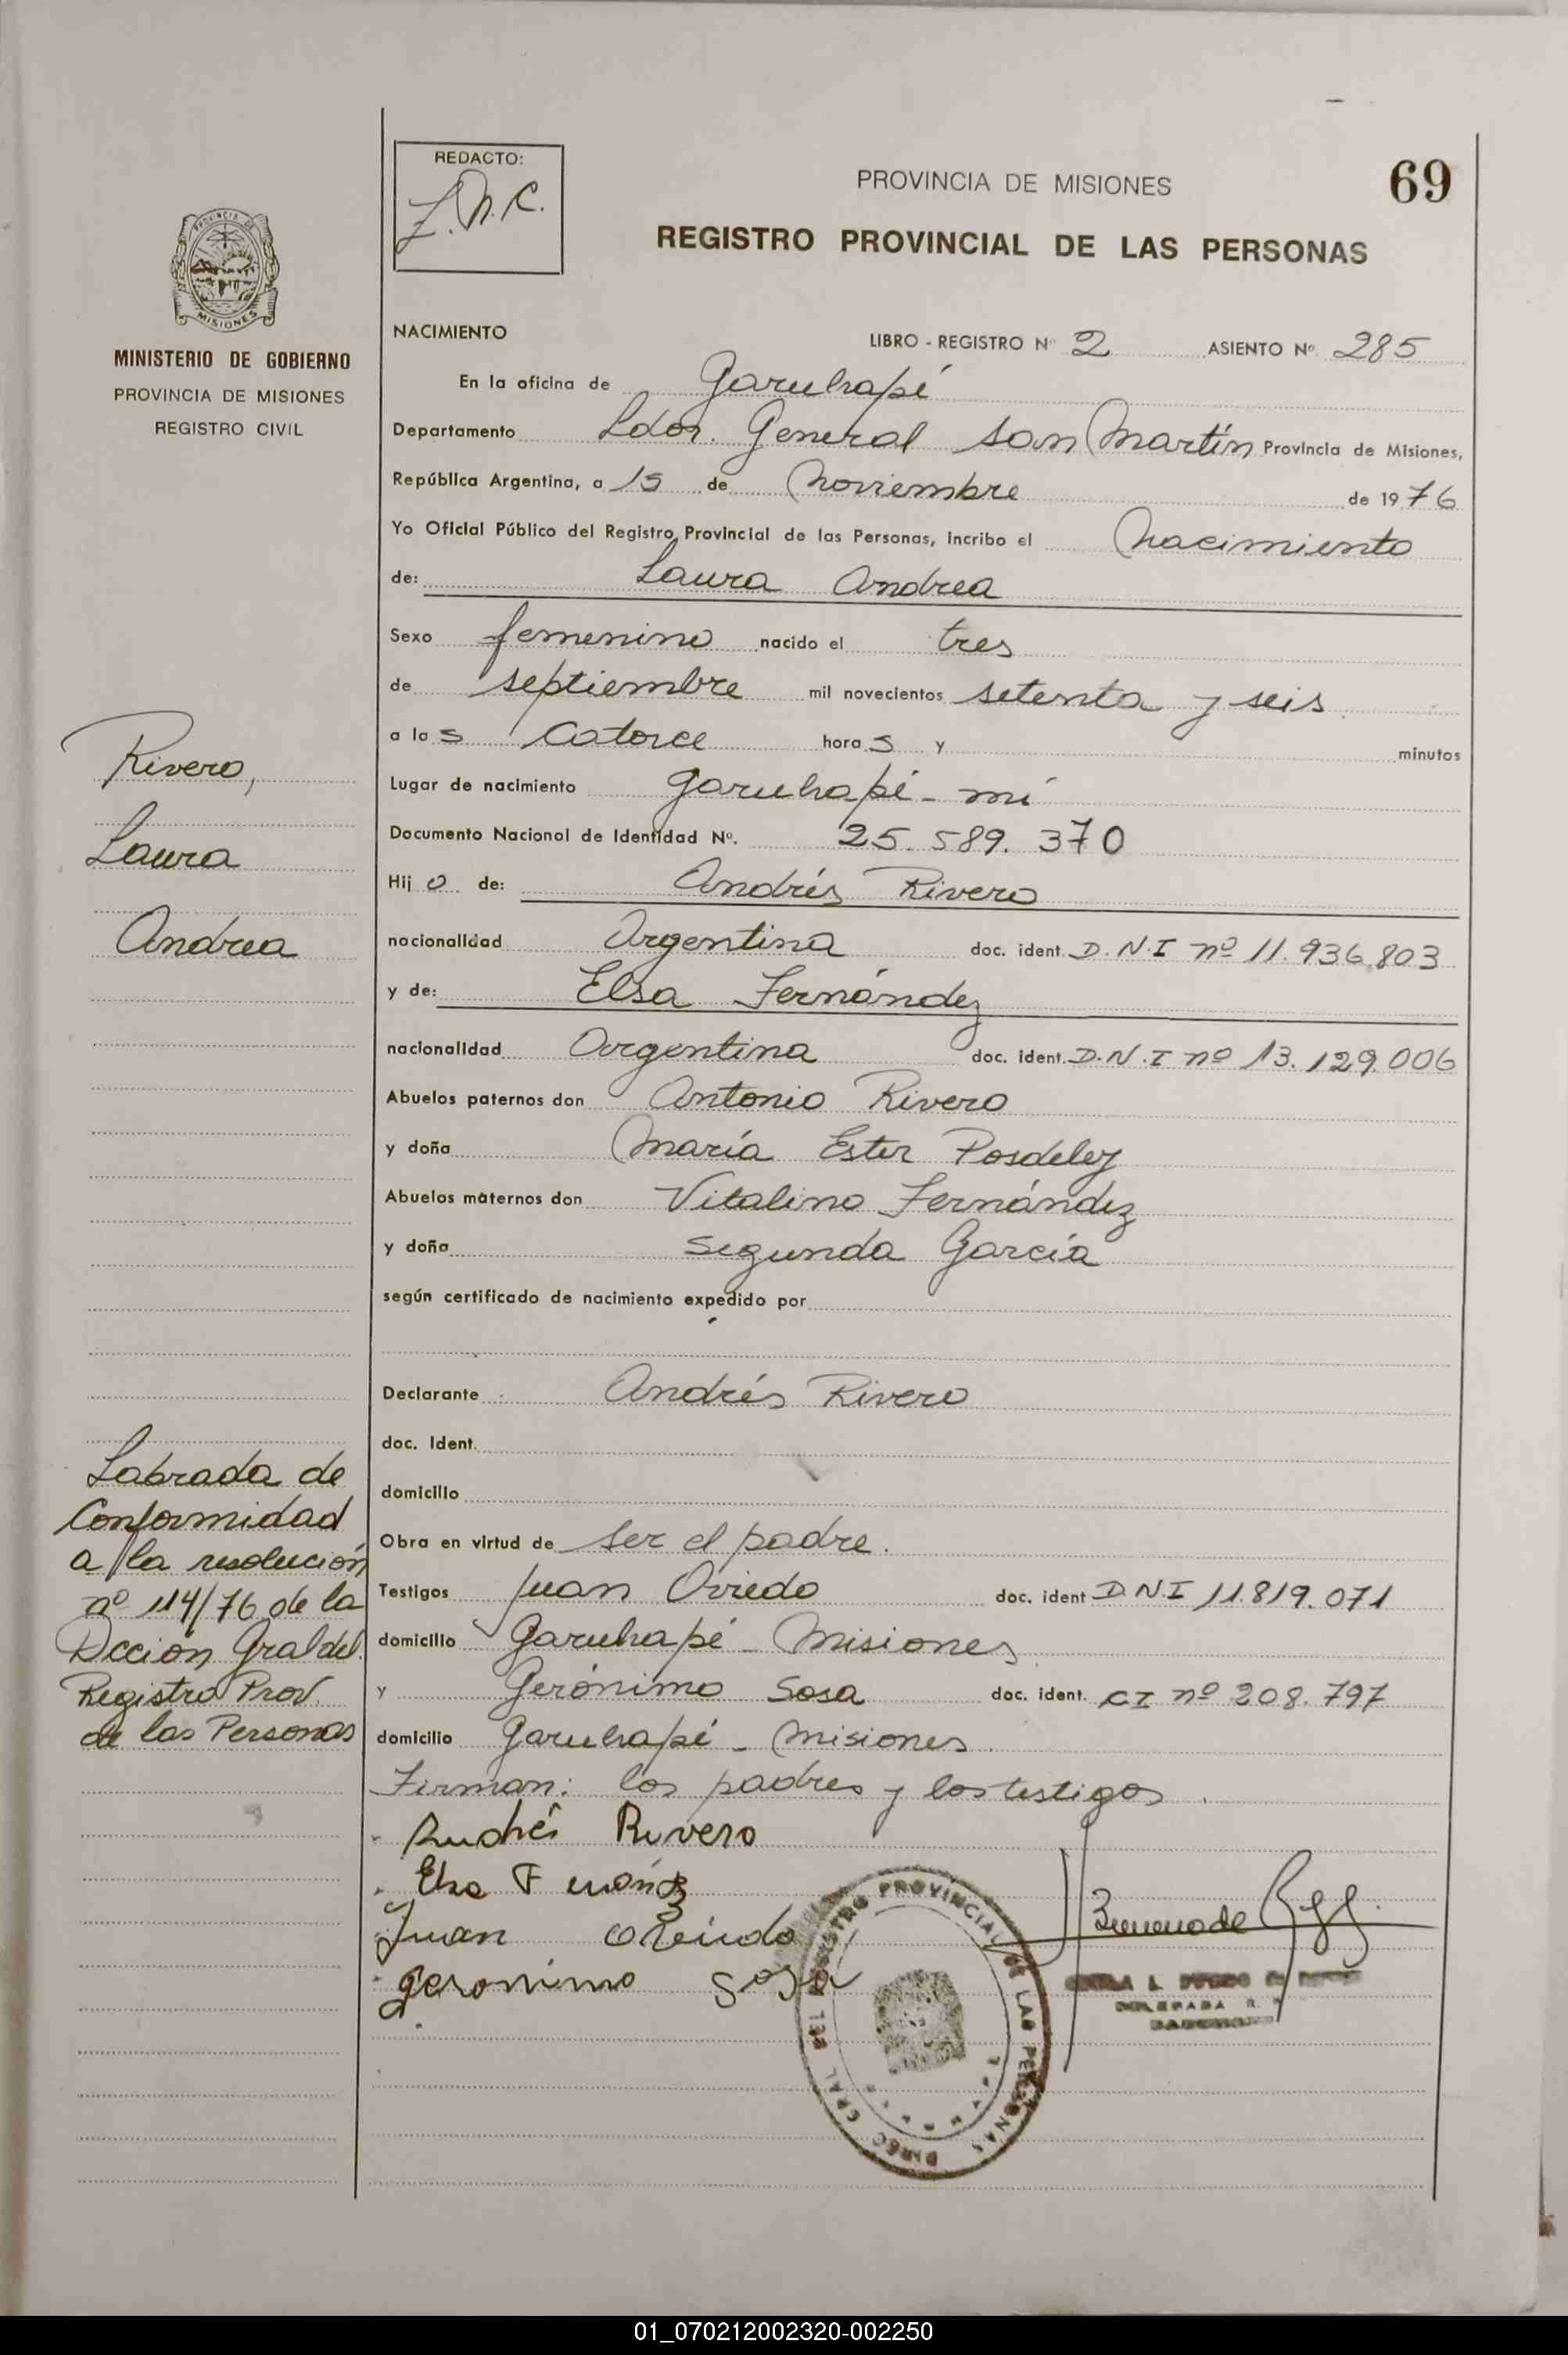 REDACTO:
PROVINCIA DE MISIONES
69
REGISTRO PROVINCIAL DE LAS PERSONAS
MISIONES
MINISTERIO DE GOBIERNO
PROVINCIA DE MISIONES
REGISTRO CIVIL
NACIMIENTO LIBRO - REGISTRO Nº 2 ASIENTO Nº 285
En la oficina de Garuhapé
Departamento Ldor. General San Martín Provincia de Misiones,
República Argentina, a 15 de Noviembre de 1976
Yo Oficial Público del Registro Provincial de las Personas, incribo el Nacimiento
de: Laura Andrea
Sexo femenino nacido el tres
de septiembre mil novecientos setenta y seis
a las Catorce horas y minutos
Lugar de nacimiento Garuhapé - mí
Documento Nacional de Identidad Nº. 25.589.370
Hijo de: Andrés Rivero
nacionalidad Argentina doc. ident. D.N.I nº 11.936.803
y de: Elsa Fernández
nacionalidad Argentina doc. ident. D.N.I nº 13.129.006
Abuelos paternos don Antonio Rivero
y doña María Ester Posdeley
Abuelos maternos don Vitalino Fernández
y doña Segunda García
según certificado de nacimiento expedido por
Declarante Andrés Rivero
doc. Ident.
domicilio
Obra en virtud de ser el padre.
Testigos Juan Oviedo doc. ident D.N.I 11.819.071
domicilio Garuhapé - Misiones
y Gerónimo Sosa doc. ident. CI nº 208.797
domicilio Garuhapé - Misiones
Firman: los padres y los testigos.
Andrés Rivero
Elsa
Juan Oviedo
Geronimo Sosa
Rivero,
Laura
Andrea
Labrada de
Conformidad
a la resolución
nº 114/76 de la
Dccion Gral del
Registro Prov.
de las Personas
DIREC. GRAL DEL REGISTRO PROVINCIAL DE LAS PERSONAS
01_070212002320-002250